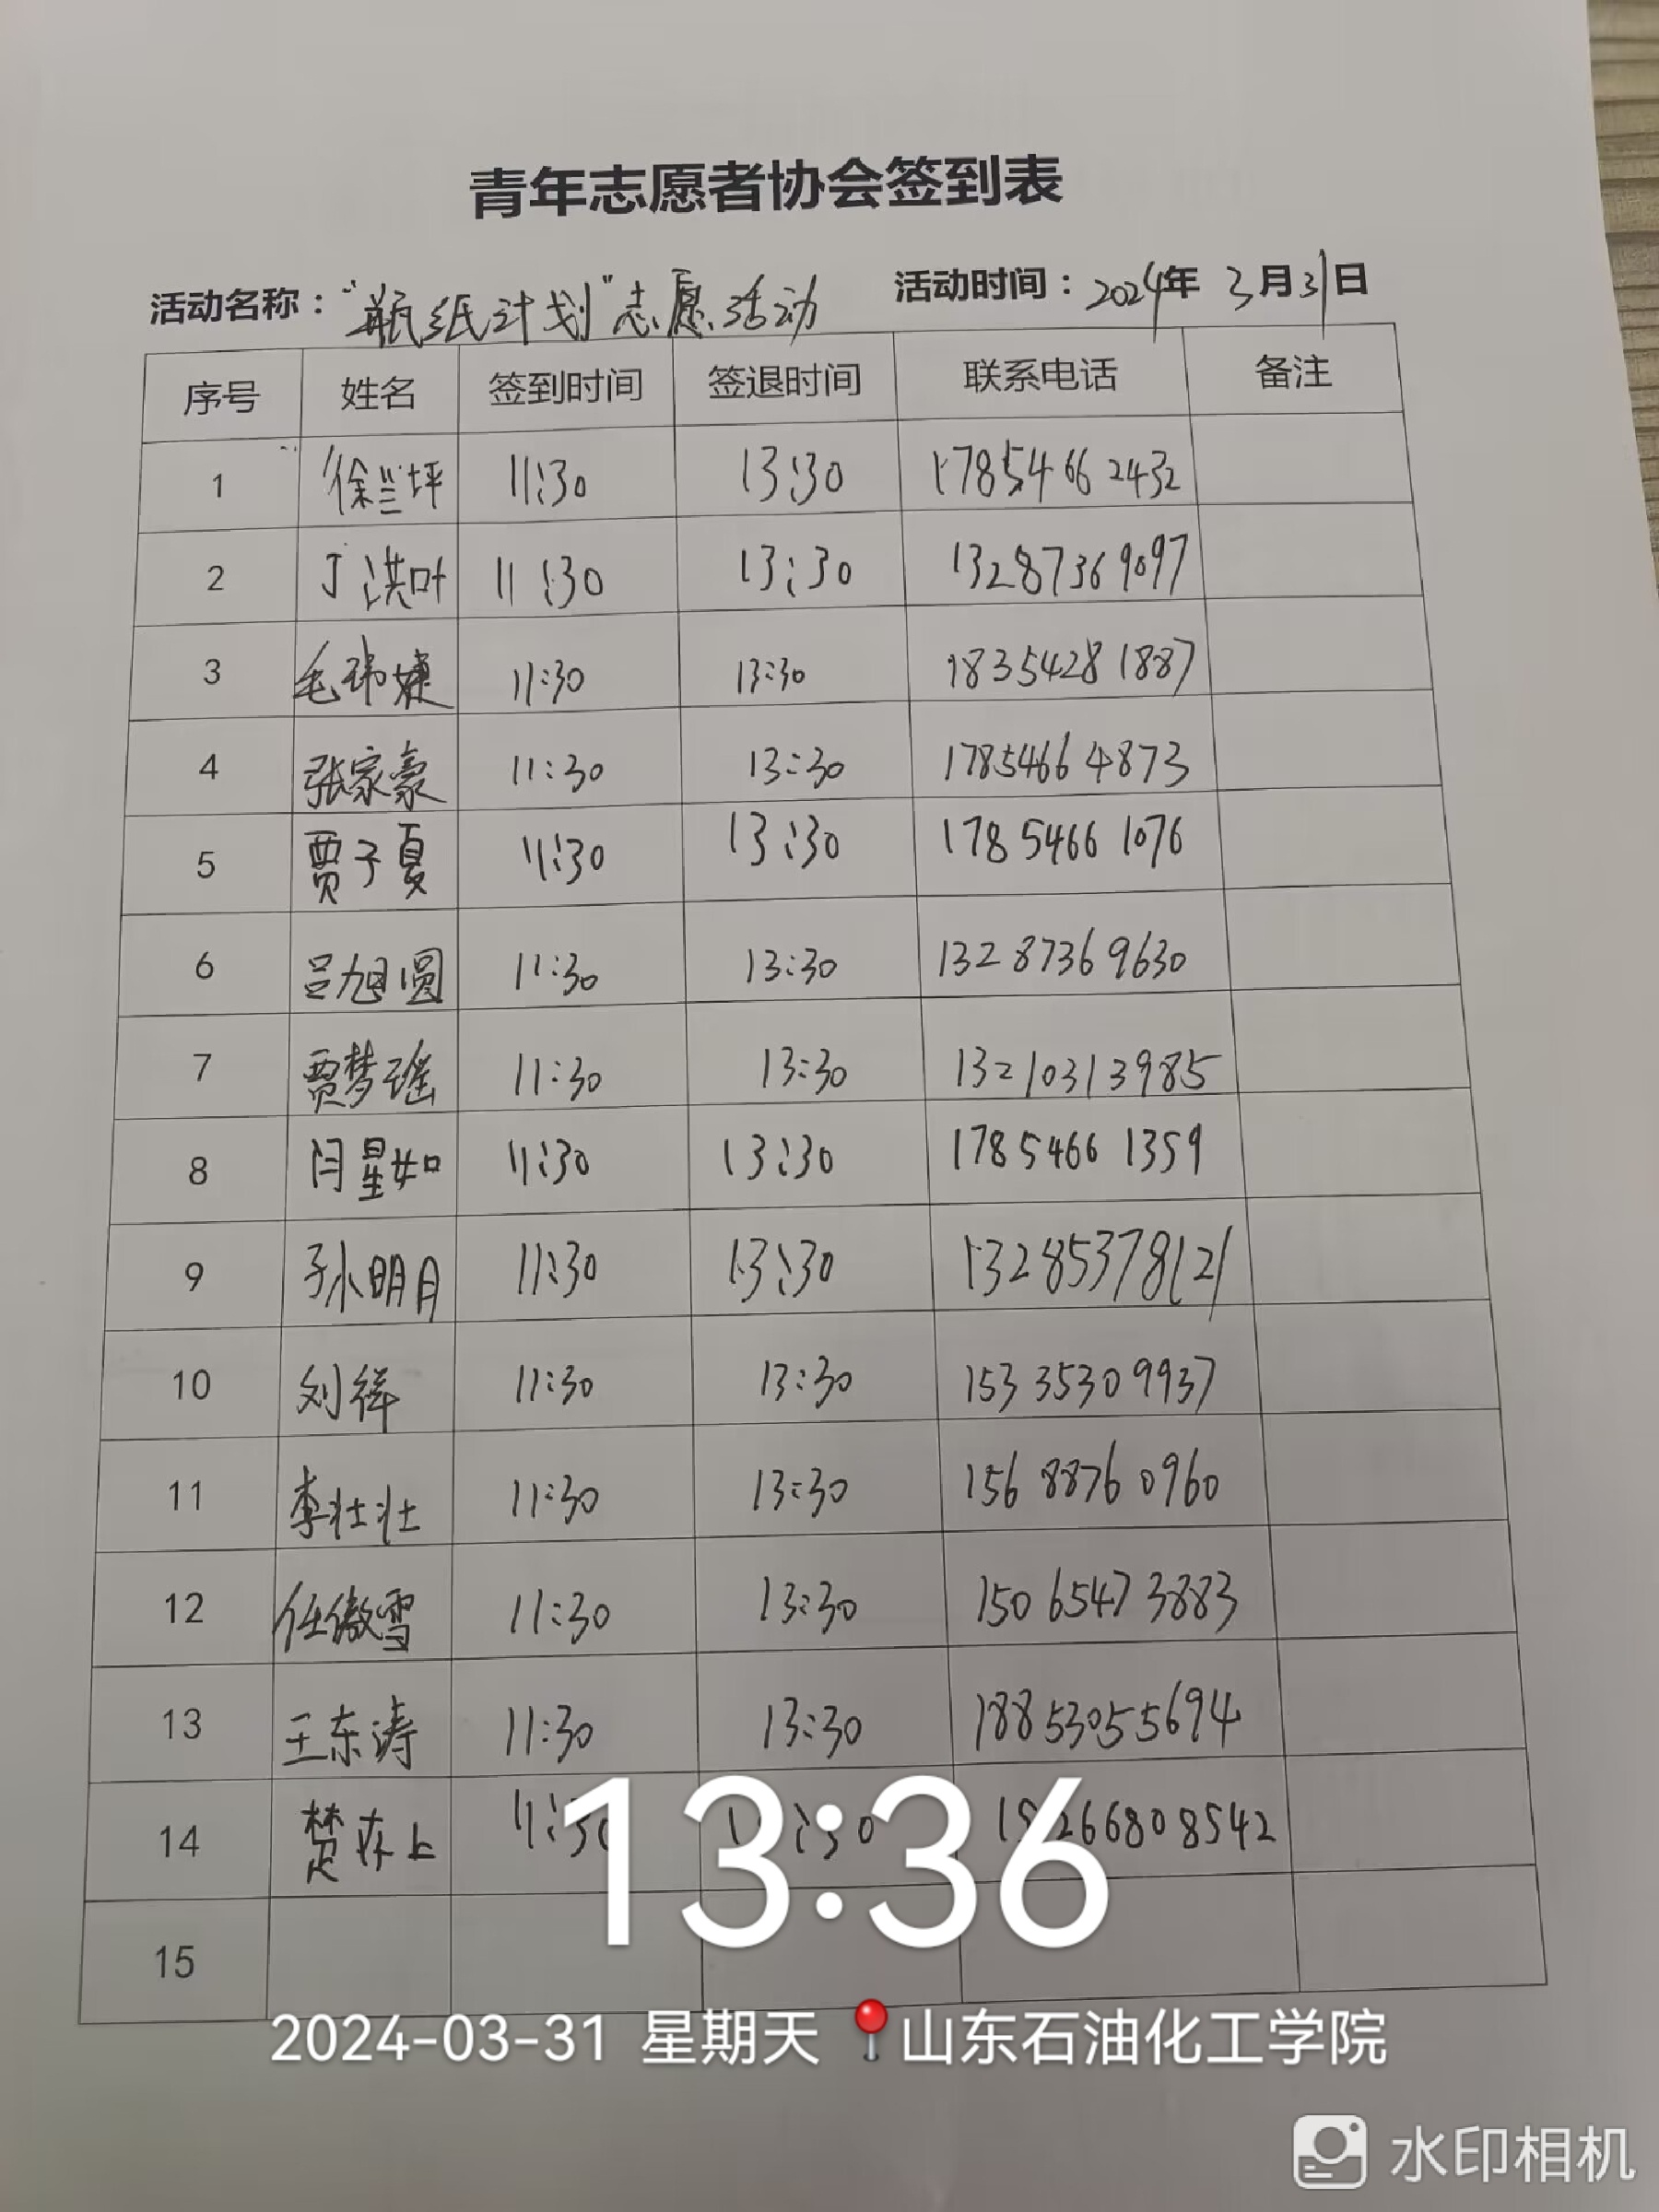 青年志愿者协会签到表
活动名称：“瓶纸计划”志愿活动 活动时间：2024年 3月31日
序号 姓名 签到时间 签退时间 联系电话 备注
1 徐兰坪 11:30 13:30 17854662432
2 丁洪叶 11:30 13:30 13287369097
3 毛玮婕 11:30 13:30 18354281887
4 张家豪 11:30 13:30 17854664873
5 贾子夏 11:30 13:30 17854661076
6 吕旭圆 11:30 13:30 13287369630
7 贾梦瑶 11:30 13:30 13210313985
8 闫星如 11:30 13:30 17854661359
9 孙明月 11:30 13:30 13285378121
10 刘祥 11:30 13:30 15335309937
11 李壮壮 11:30 13:30 15688760960
12 任傲雪 11:30 13:30 15065473883
13 王东涛 11:30 13:30 18853055694
14 楚 上 11:30
13:36
15
2024-03-31 星期天 山东石油化工学院
水印相机